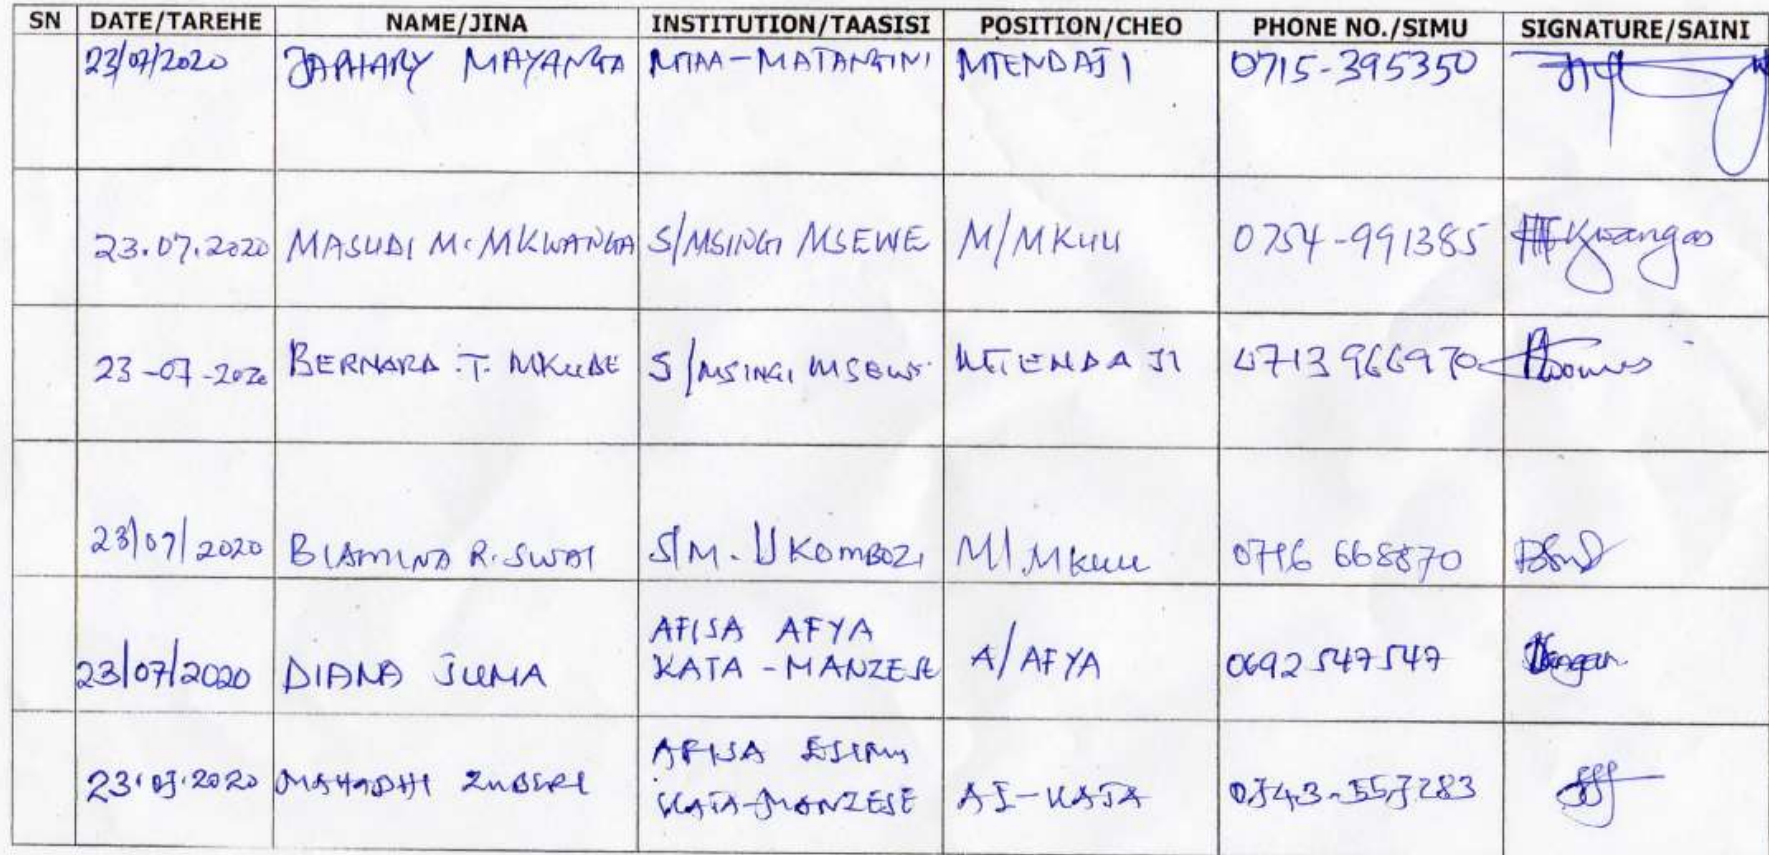 SN DATE/TAREHE NAME/JINA INSTITUTION/TAASISI POSITION/CHEO PHONE NO./SIMU SIGNATURE/SAINI
23/07/2020 JAPHARY MAYANGA MTAA-MATANGINI MTENDAJI 0715-395350
23.07.2020 MASUDI M. MKWANGA S/MSINGI MSEWE M/MKUU 0754-991385
23-07-2020 BERNARD .T. MKUDE S/MSINGI MSEWE MTENDAJI 0713 966970
23/07/2020 R. SWAI S/M. UKOMBOZI M/.MKUU 668870
23/07/2020 DIANA JUMA AFISA AFYA
KATA - MANZESE A/AFYA 0692 547547
23.07.2020 ZUBERI AFISA ELIMU
KATA-MANZESE KATA 0743-557283